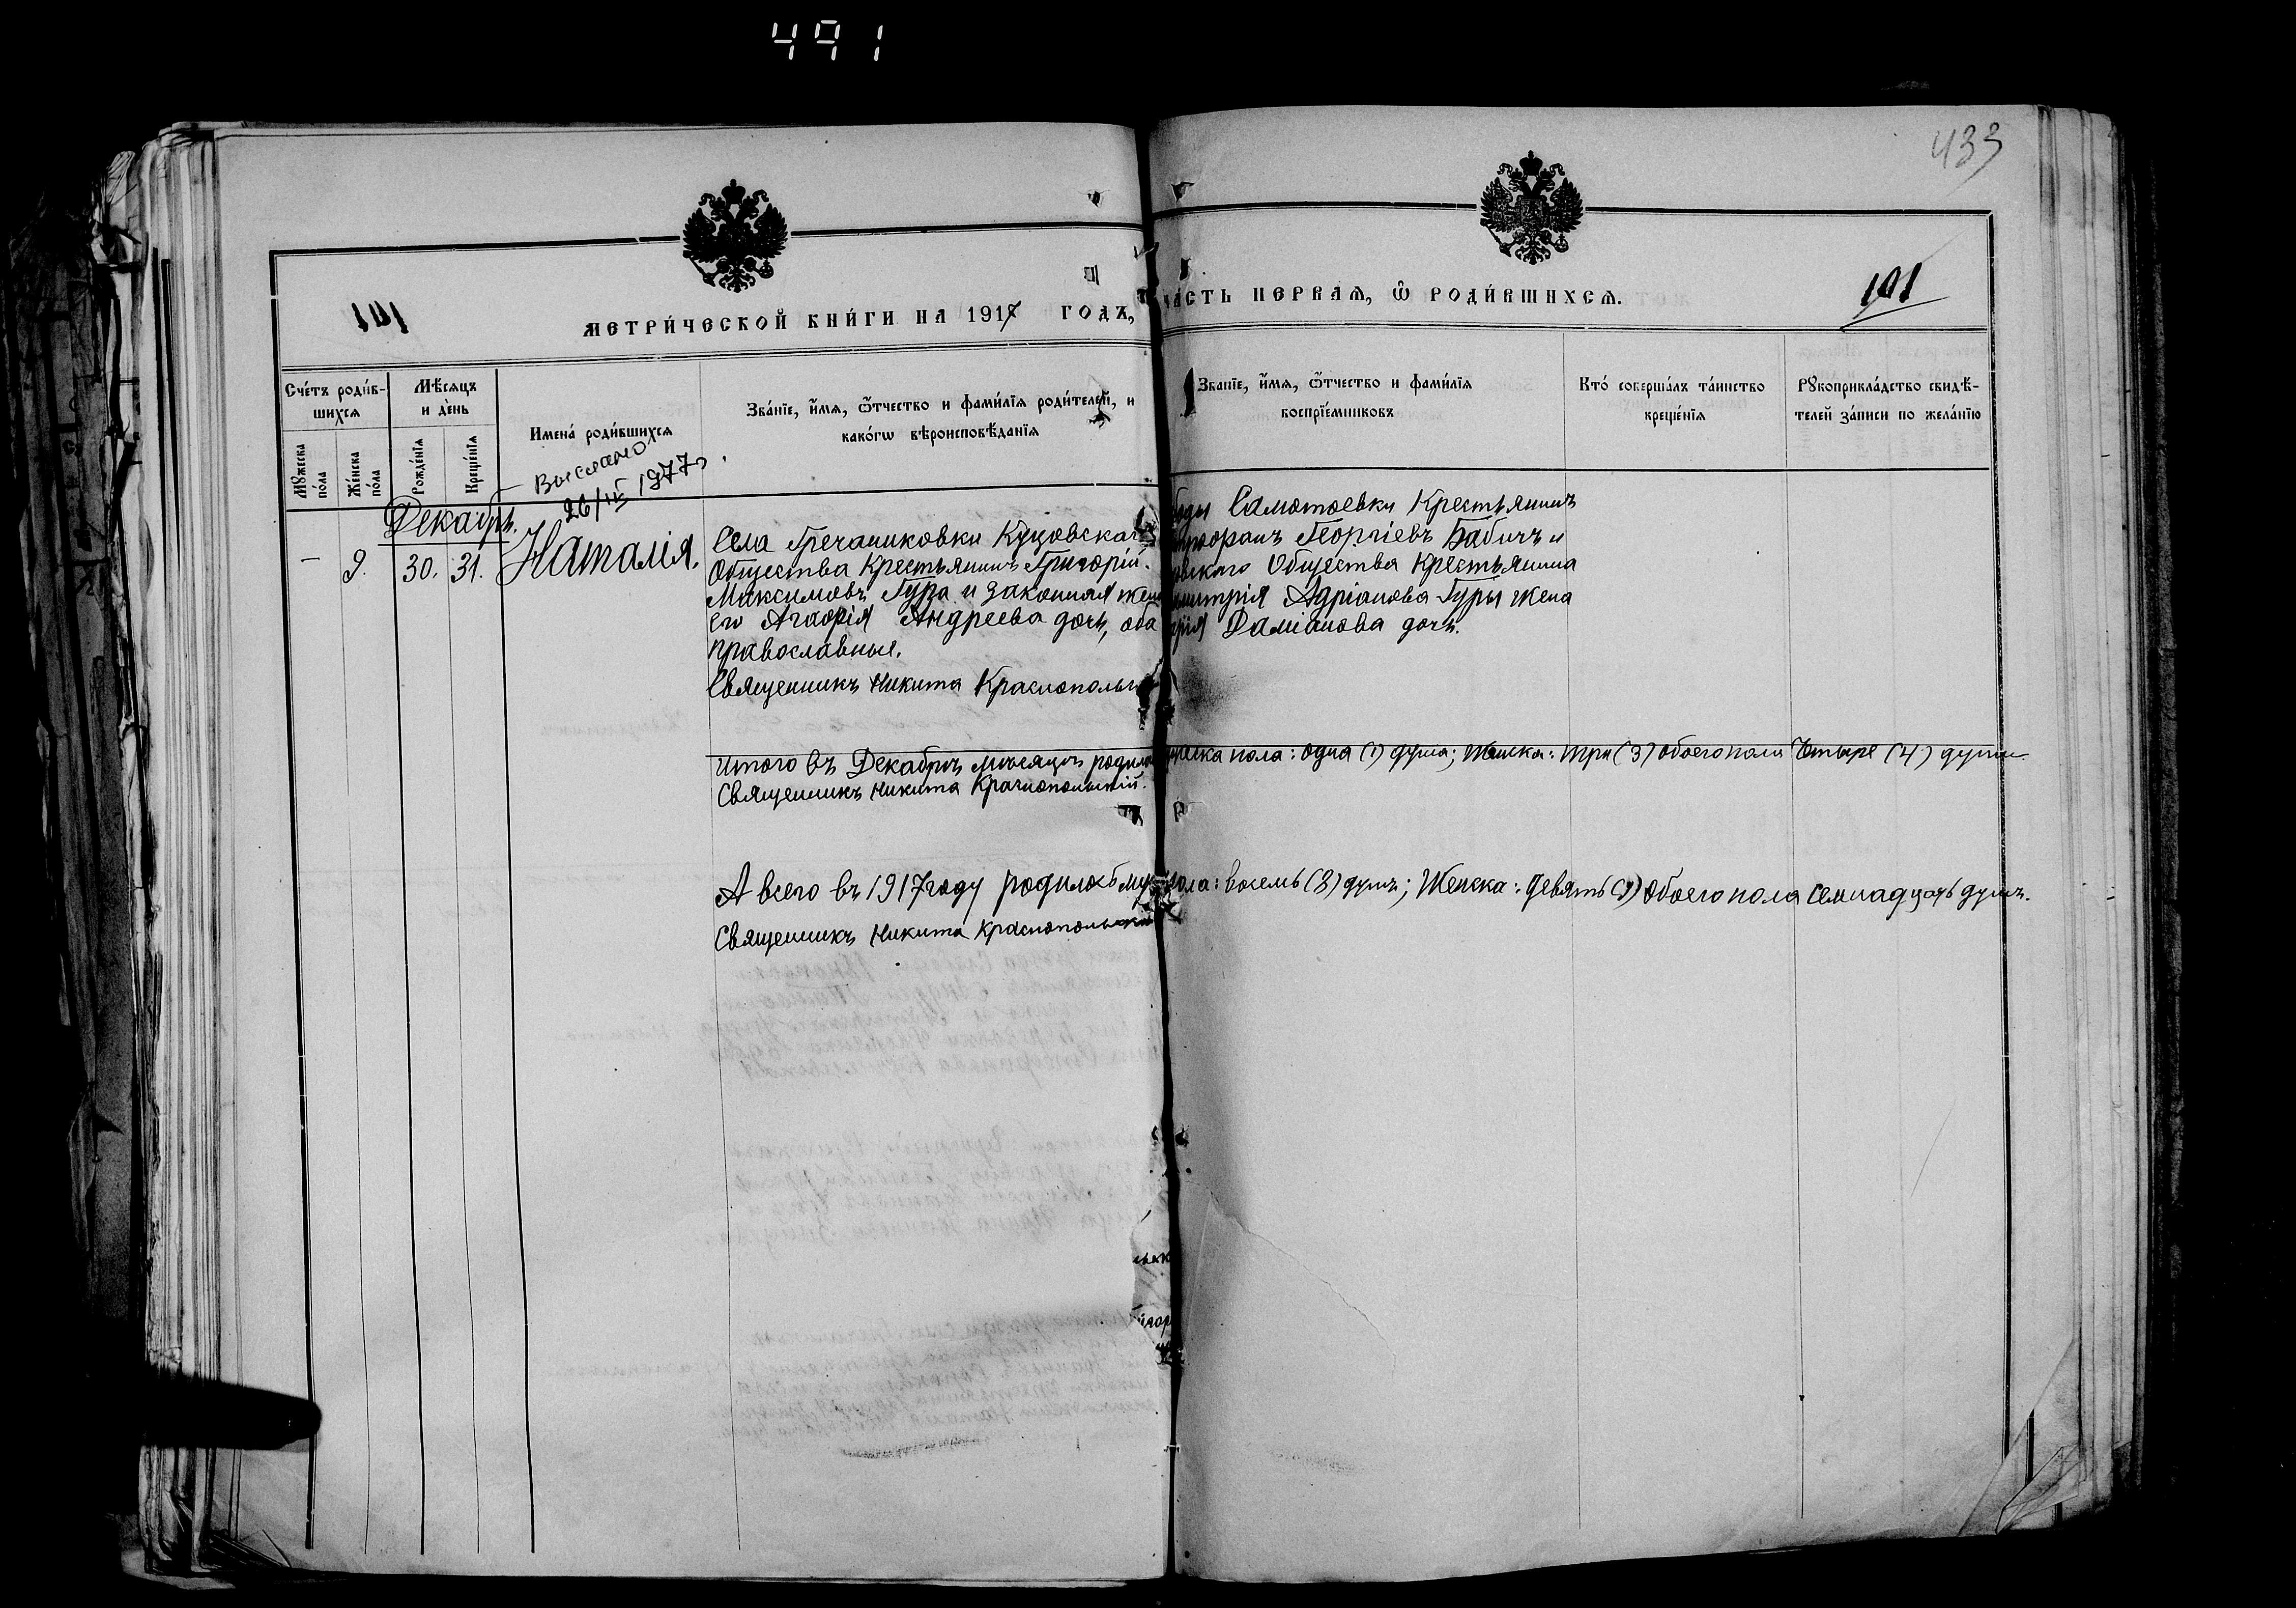 491
433
101
101
МЕТРИ́ЧЕСКОЙ КНИ́ГИ НА 1917 ГОДЪ,
ЧАСТЬ ПЕРВАЯ, Ѡ РОДИ́ВШИХСЯ.
Сче́тъ роди́в-
шихся
Мѣ́сяцъ
и де́нь
Мꙋ́жеска
по́ла
Же́нска
по́ла
Рожде́нїя
Креще́нїя
Имена́ роди́вшихся
Зва́нїе, и҆́мя, ѻ҆́тчество и фами́лїя роди́телей, и
како́гѡ вѣроисповѣ́данїя
Зва́нїе, и҆́мя, ѻ҆́тчество и фами́лїя
воспрїе́мниковъ
Кто́ соверша́лъ та́инство
креще́нїя
Рꙋкоприкла́дство свидѣ́-
телей за́писи по жела́нїю
Выслано
26/III 1977г.
Декабрь.
— 9. 30. 31. Наталія.
Села Гречаниковки Куцовскаго
Общества Крестьянинъ Григорій
Максимовъ Гура и законная жена
его Агафія Андреева дочь, оба
православные.
Священникъ Никита Краснопольскій
Самотоевки Крестьянинъ
Георгіевъ Бабичъ и
Общества Крестьянина
Адріанова Гуры жена
Даміанова дочь.
Итого въ Декабрѣ мѣсяцѣ родилось пола: одна (1) душа; Женска: три (3) обоего пола Четыре (4) души
Священникъ Никита Краснопольскій.
А всего въ 1917 году родилось муж. пола: восемь (8) душъ; Женска: девять (9) Обоего пола семнадцать душъ.
Священникъ Никита Краснопольскій